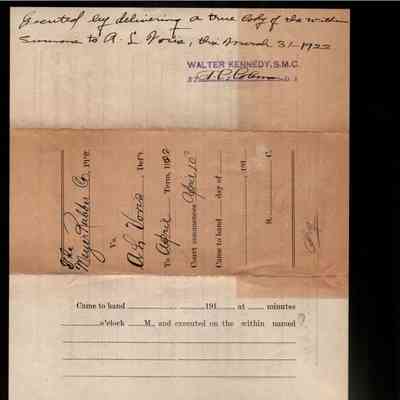 Executed by delivering a true Copy of the within
Summons to A. L. Voris, this March 31-1922
WALTER KENNEDY, S.M.C.
D.S.
The
Meyer Rabbe Co. Pltff.
Vs.
A L Voris Deft.
To April Term, 1922
Court commences April 10
Came to hand day of
191
S. C.
Came to hand 191 at minutes
o'clock M., and executed on the within named